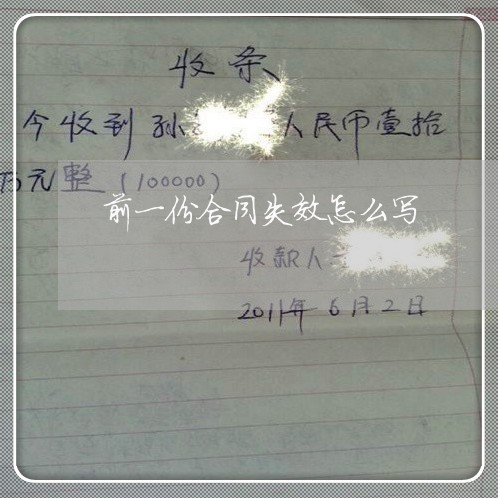 收条
今收到孙 人民币壹拾
万元整（100000）
前一份合同失效怎么写
收款人
2011年6月2日